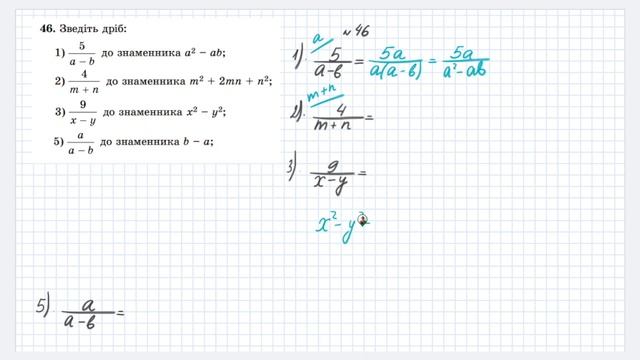 46. Зведіть дріб:
1) 5/(a – b) до знаменника a² – ab;
2) 4/(m + n) до знаменника m² + 2mn + n²;
3) 9/(x – y) до знаменника x² – y²;
5) a/(a – b) до знаменника b – a;
№46
1). 5/(a-b) ^a/ = 5a/(a(a-b)) = 5a/(a²-ab)
2). 4/(m+n) ^m+n/ =
3) 9/(x-y) =
x² - y²
5). a/(a-b) =